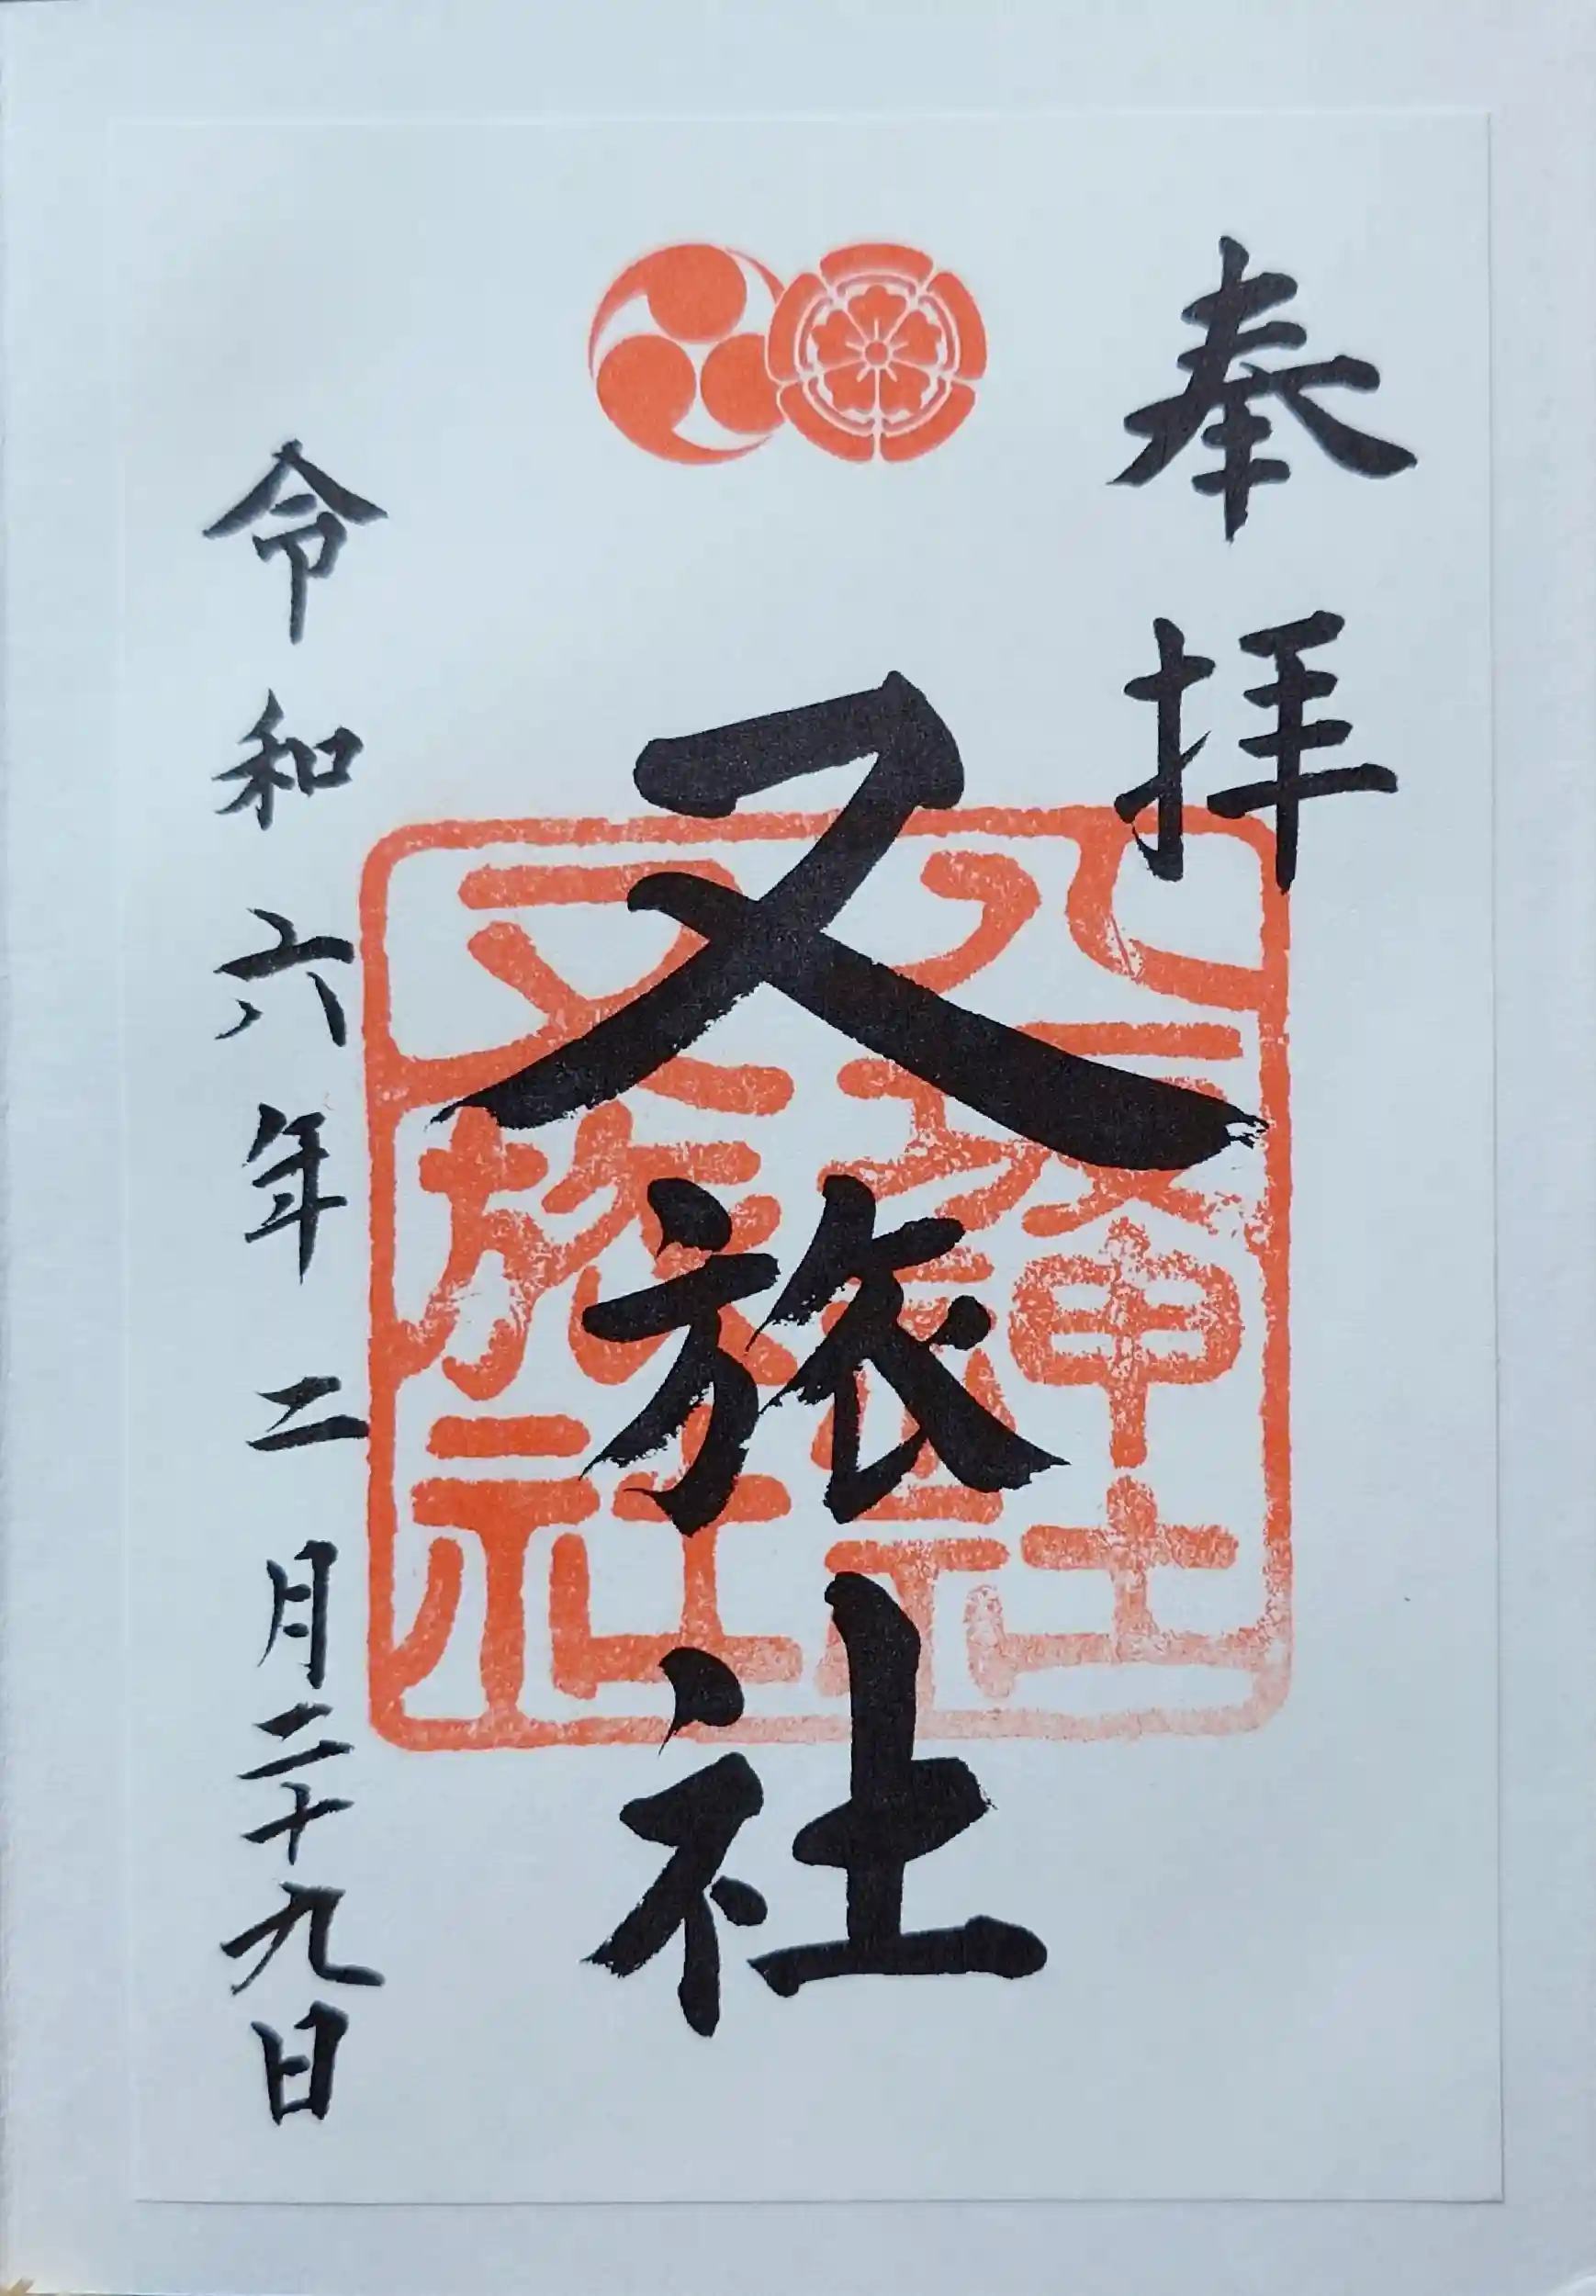 奉拝
又旅社
八坂神社
又旅社
令和六年二月二十九日